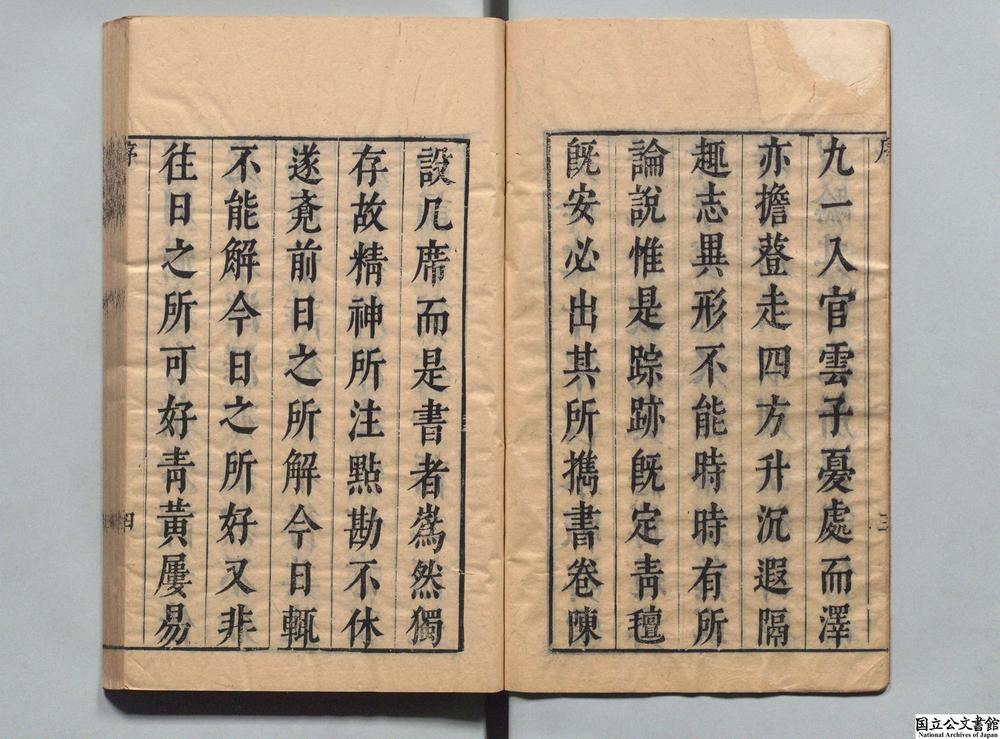 九一入官雲子憂處而澤
亦擔簦走四方升沉遐隔
趣志異形不能時時有所
論說惟是踪跡既定青氊
既安必出其所擕書卷陳
設几席而是書者嶲然獨
存故精神所注點勘不休
遂竟前日之所解今日輒
不能解今日之所好又非
往日之所可好青黃屢易
序
三
序
四
国立公文書館
National Archives of Japan